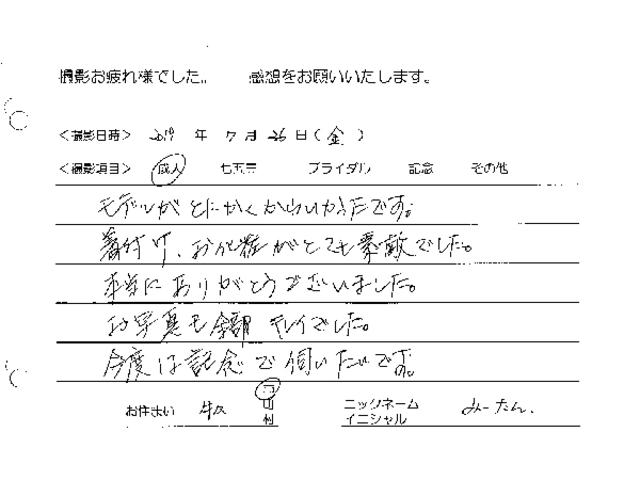 撮影お疲れ様でした。 感想をお願いいたします。
<撮影日時> 2019 年 7 月 26 日(金)
<撮影項目> 成人 七五三 ブライダル 記念 その他
モデルがとにかくかわいかったです。
着付け、お化粧がとても素敵でした。
本当にありがとうございました。
お写真も全部キレイでした。
今度は記念で伺いたいです。
お住まい 市 町 村 ニックネーム イニシャル みーたん.